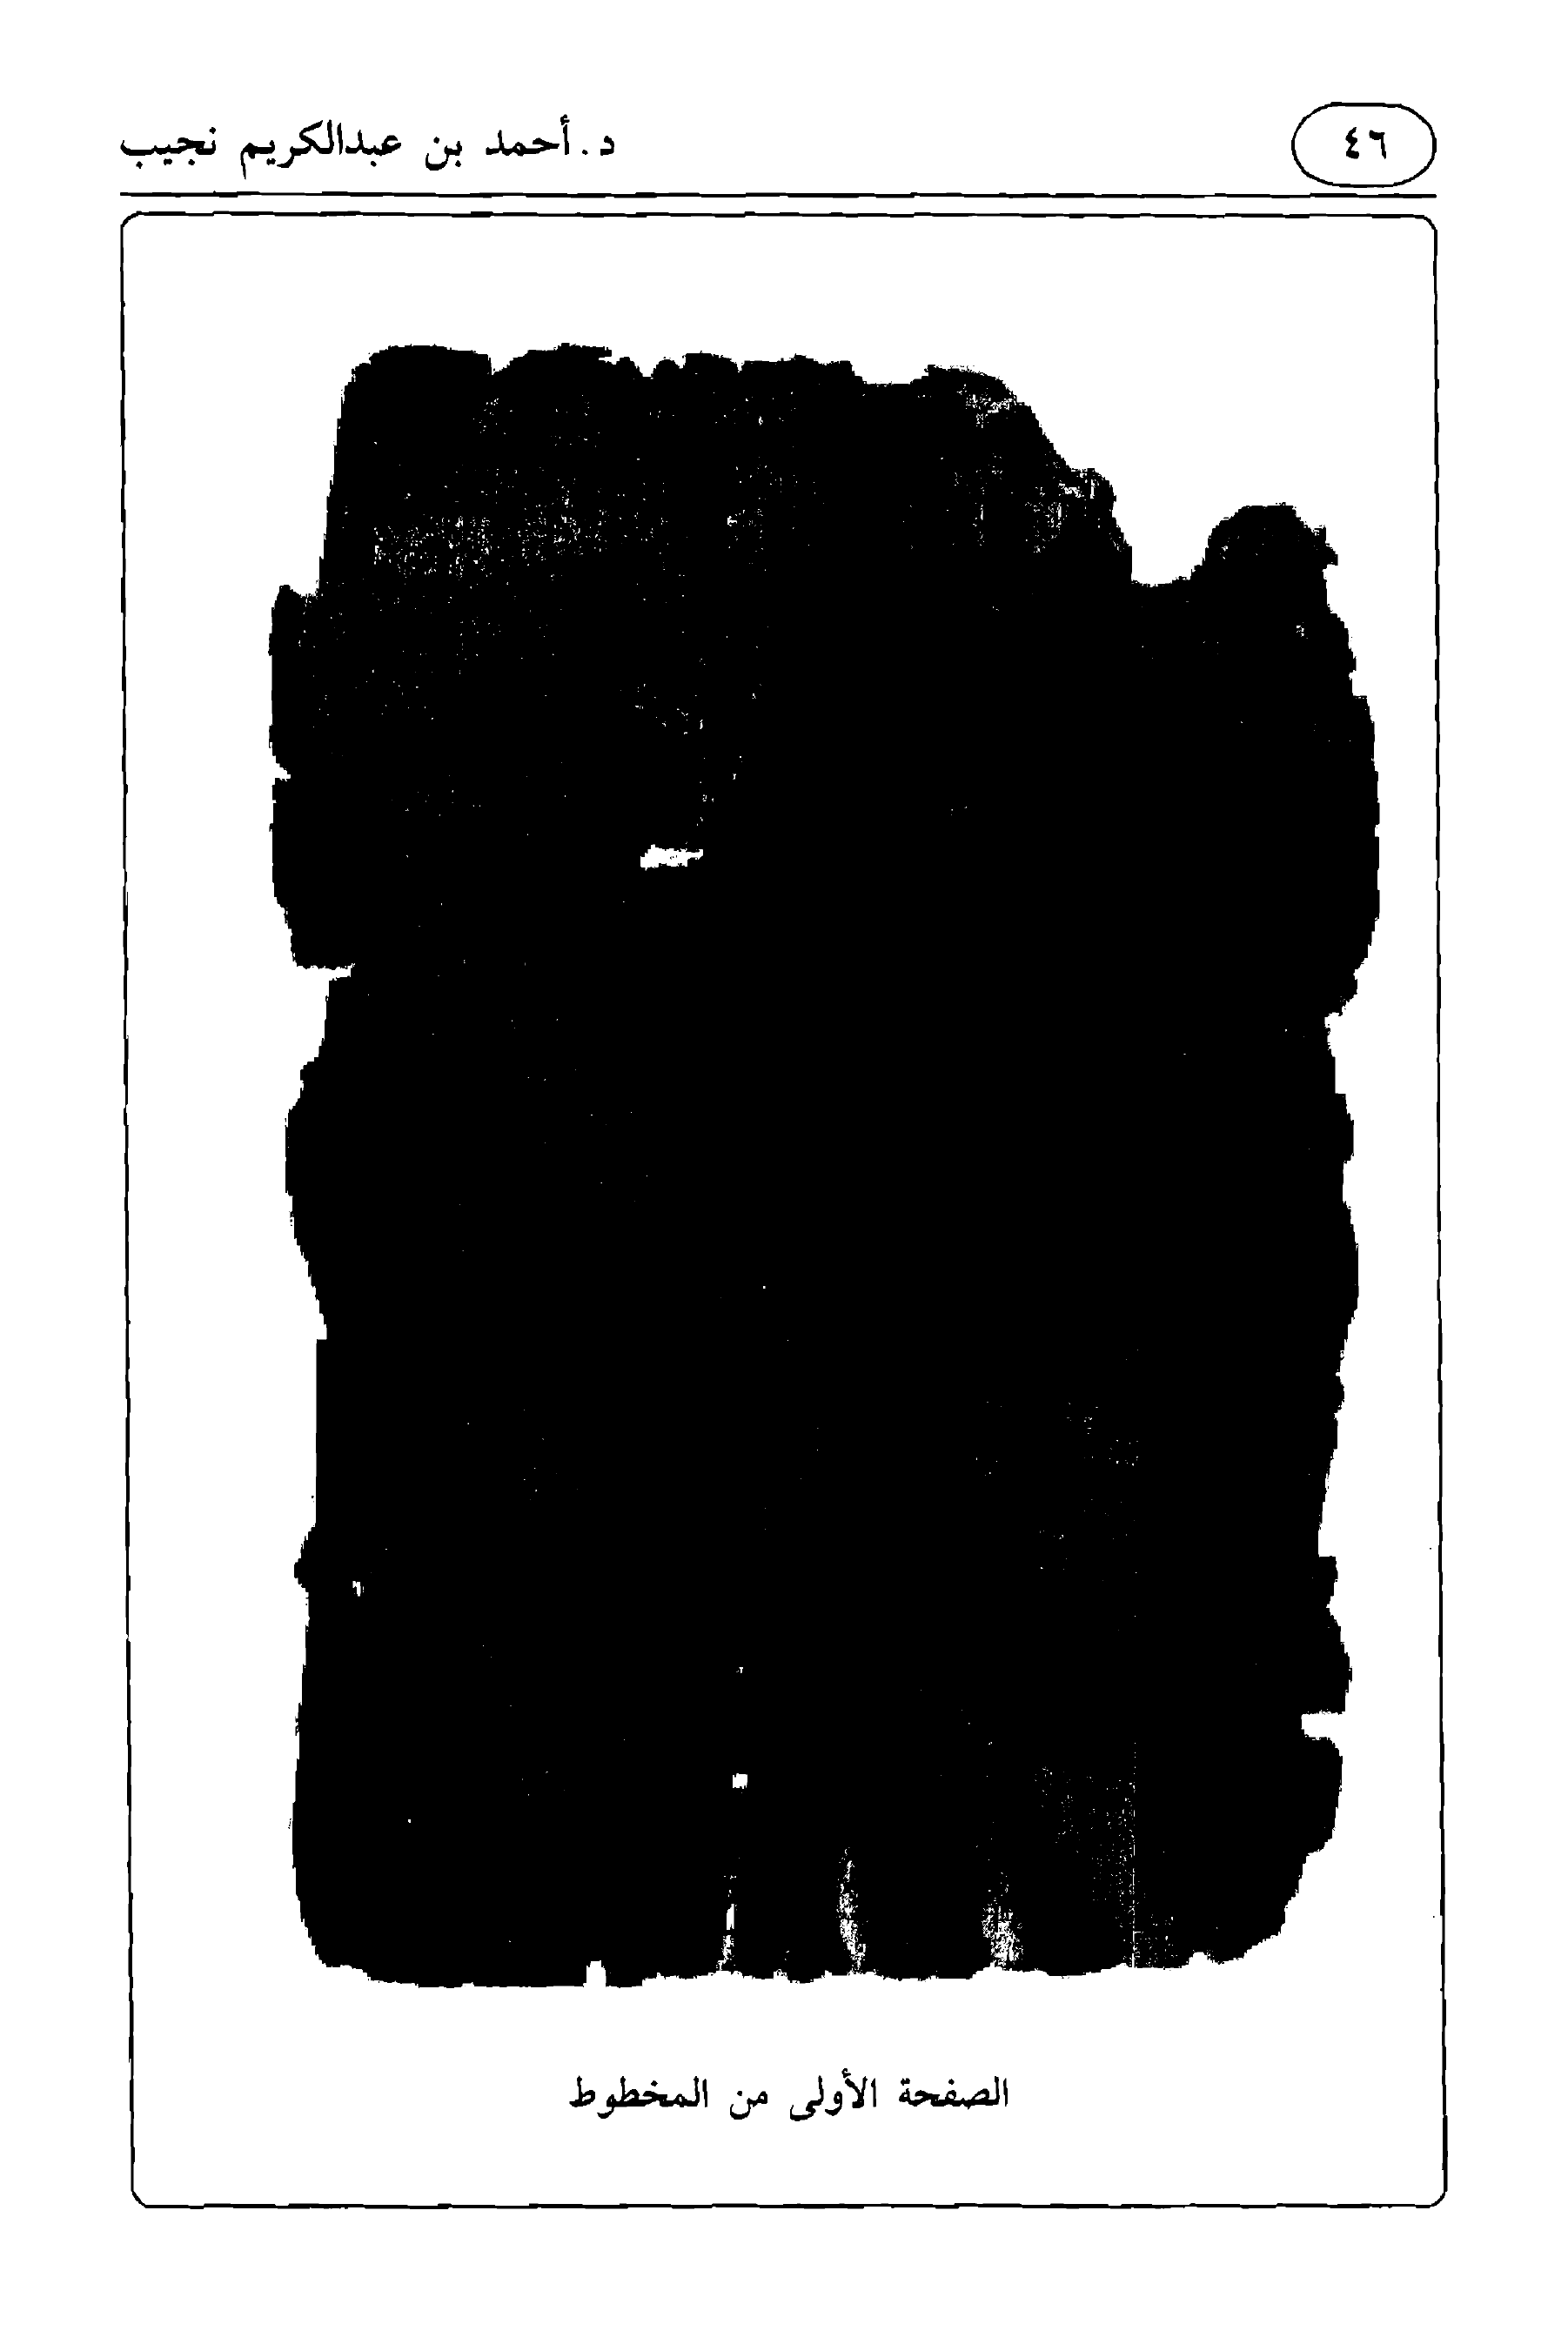 ٤٦
د. أحمد بن عبدالكريم نجيب
الصفحة الأولى من المخطوط